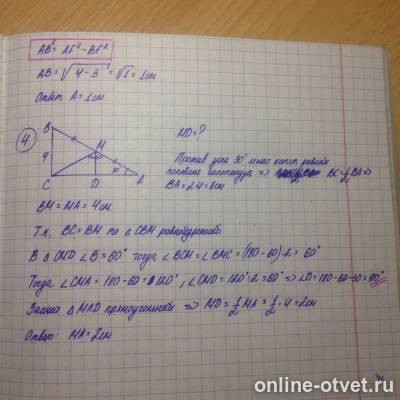 AB² = AF² - BF²
AB = √4-3 = √1 = 1см
Ответ A = 1см
4
MD = ?
B
M
4
C
D
A
Против угла 30° лежит катет равный
половине гипотенузы => BC = ½ BA =>
BA = 2·4 = 8см
BM = MA = 4см
Т.к. BC = BM то △ CBM равнобедренный
В △ CMD ∠B = 60° тогда ∠BCM = ∠BMC = (180-60):2 = 60°
Тогда ∠CMA = 180-60 = 120°, ∠CMD = 120°:2 = 60° => ∠D = 180-60-30 = 90°
Значит △ MAD прямоугольный => MD = ½ MA = ½ · 4 = 2см
Ответ: MA = 2см
online-otvet.ru